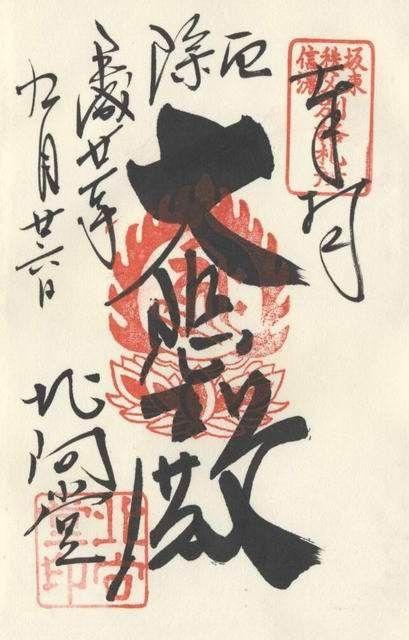 奉拝
坂東
秩父
信濃
厄除
大悲殿
平成廿
九月廿六日
北向堂
北向堂印